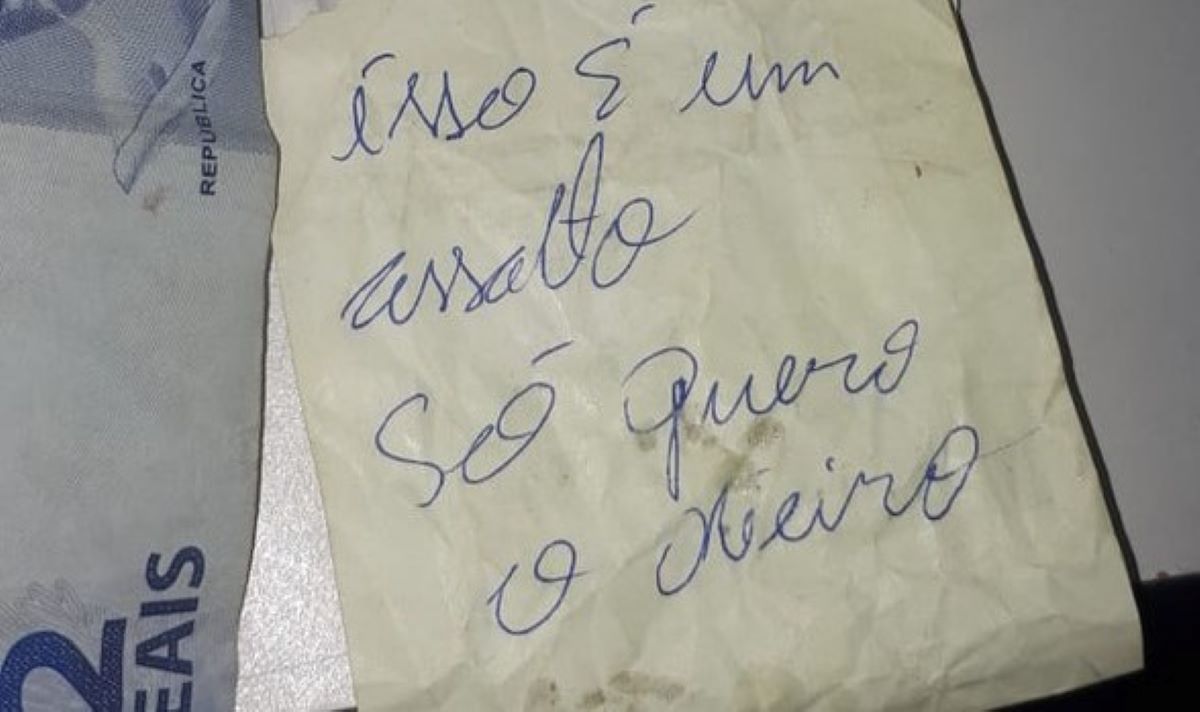 REPUBLICA
2
EAIS
isso É um
assalto
Só quero
o dieiro